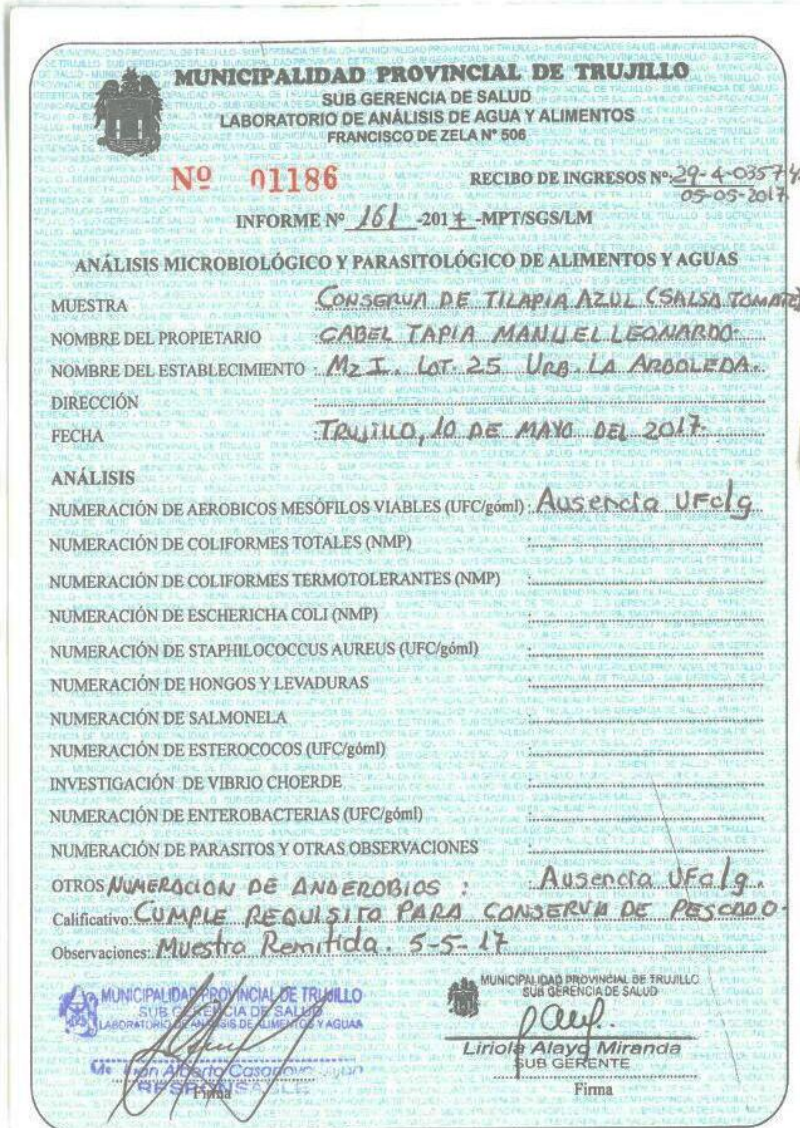 MUNICIPALIDAD PROVINCIAL DE TRUJILLO
SUB GERENCIA DE SALUD
LABORATORIO DE ANÁLISIS DE AGUA Y ALIMENTOS
FRANCISCO DE ZELA Nº 506
Nº 01186
RECIBO DE INGRESOS Nº: 29-4-03574
05-05-2017
INFORME Nº 161 -2017 -MPT/SGS/LM
ANÁLISIS MICROBIOLÓGICO Y PARASITOLÓGICO DE ALIMENTOS Y AGUAS
MUESTRA CONSERVA DE TILAPIA AZUL (SALSA TOMATE)
NOMBRE DEL PROPIETARIO CABEL TAPIA MANUEL LEONARDO.
NOMBRE DEL ESTABLECIMIENTO : Mz I. LOT. 25 URB. LA ARBOLEDA.
DIRECCIÓN :
FECHA : TRUJILLO, 10 DE MAYO DEL 2017.
ANÁLISIS
NUMERACIÓN DE AEROBICOS MESÓFILOS VIABLES (UFC/góml) : Ausencia UFC/g
NUMERACIÓN DE COLIFORMES TOTALES (NMP) :
NUMERACIÓN DE COLIFORMES TERMOTOLERANTES (NMP) :
NUMERACIÓN DE ESCHERICHA COLI (NMP) :
NUMERACIÓN DE STAPHILOCOCCUS AUREUS (UFC/góml) :
NUMERACIÓN DE HONGOS Y LEVADURAS :
NUMERACIÓN DE SALMONELA :
NUMERACIÓN DE ESTEROCOCOS (UFC/góml) :
INVESTIGACIÓN DE VIBRIO CHOERDE :
NUMERACIÓN DE ENTEROBACTERIAS (UFC/góml) :
NUMERACIÓN DE PARASITOS Y OTRAS OBSERVACIONES :
OTROS NUMERACION DE ANAEROBIOS : Ausencia UFC/g.
Calificativo: CUMPLE REQUISITO PARA CONSERVA DE PESCADO.
Observaciones: Muestra Remitida. 5-5-17
MUNICIPALIDAD PROVINCIAL DE TRUJILLO
SUB GERENCIA DE SALUD
LABORATORIO DE ANALISIS DE ALIMENTOS Y AGUAS
Alberto Casanova
RESPONSABLE
Firma
MUNICIPALIDAD PROVINCIAL DE TRUJILLO
SUB GERENCIA DE SALUD
Liriola Alayo Miranda
SUB GERENTE
Firma